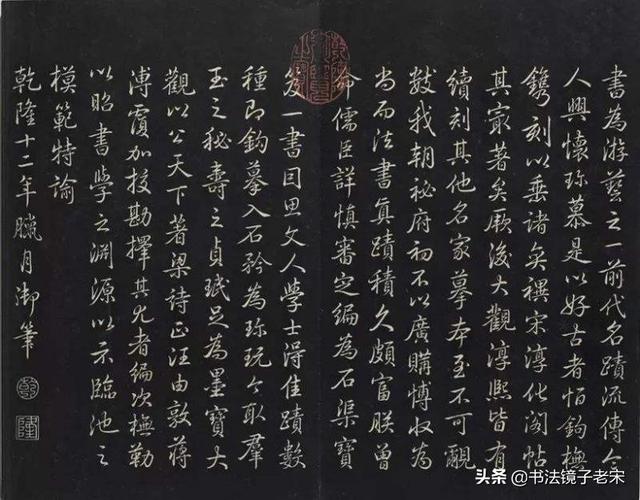 書為游藝之一前代名蹟流傳令
人興懷珍慕是以好古者恒鈎橅
鐫刻以垂諸奕禩宋淳化閣帖
其最著矣厥後大觀淳熙皆有
續刻其他名家摹本至不可覼
數我朝秘府初不以廣購博收為
尚而法書真蹟積久頗富朕曾
命儒臣詳慎審定編為石渠寶
笈一書因思文人學士得佳蹟數
種即鈎摹入石矜為珍玩今取群
玉之秘壽之貞珉足為墨寶大
觀以公天下著梁詩正汪由敦蔣
溥覆加校勘擇其尤者編次橅勒
以昭書學之淵源以示臨池之
模範特諭
乾隆十二年臘月御筆
乾
隆
头条 @书法镜子老宋